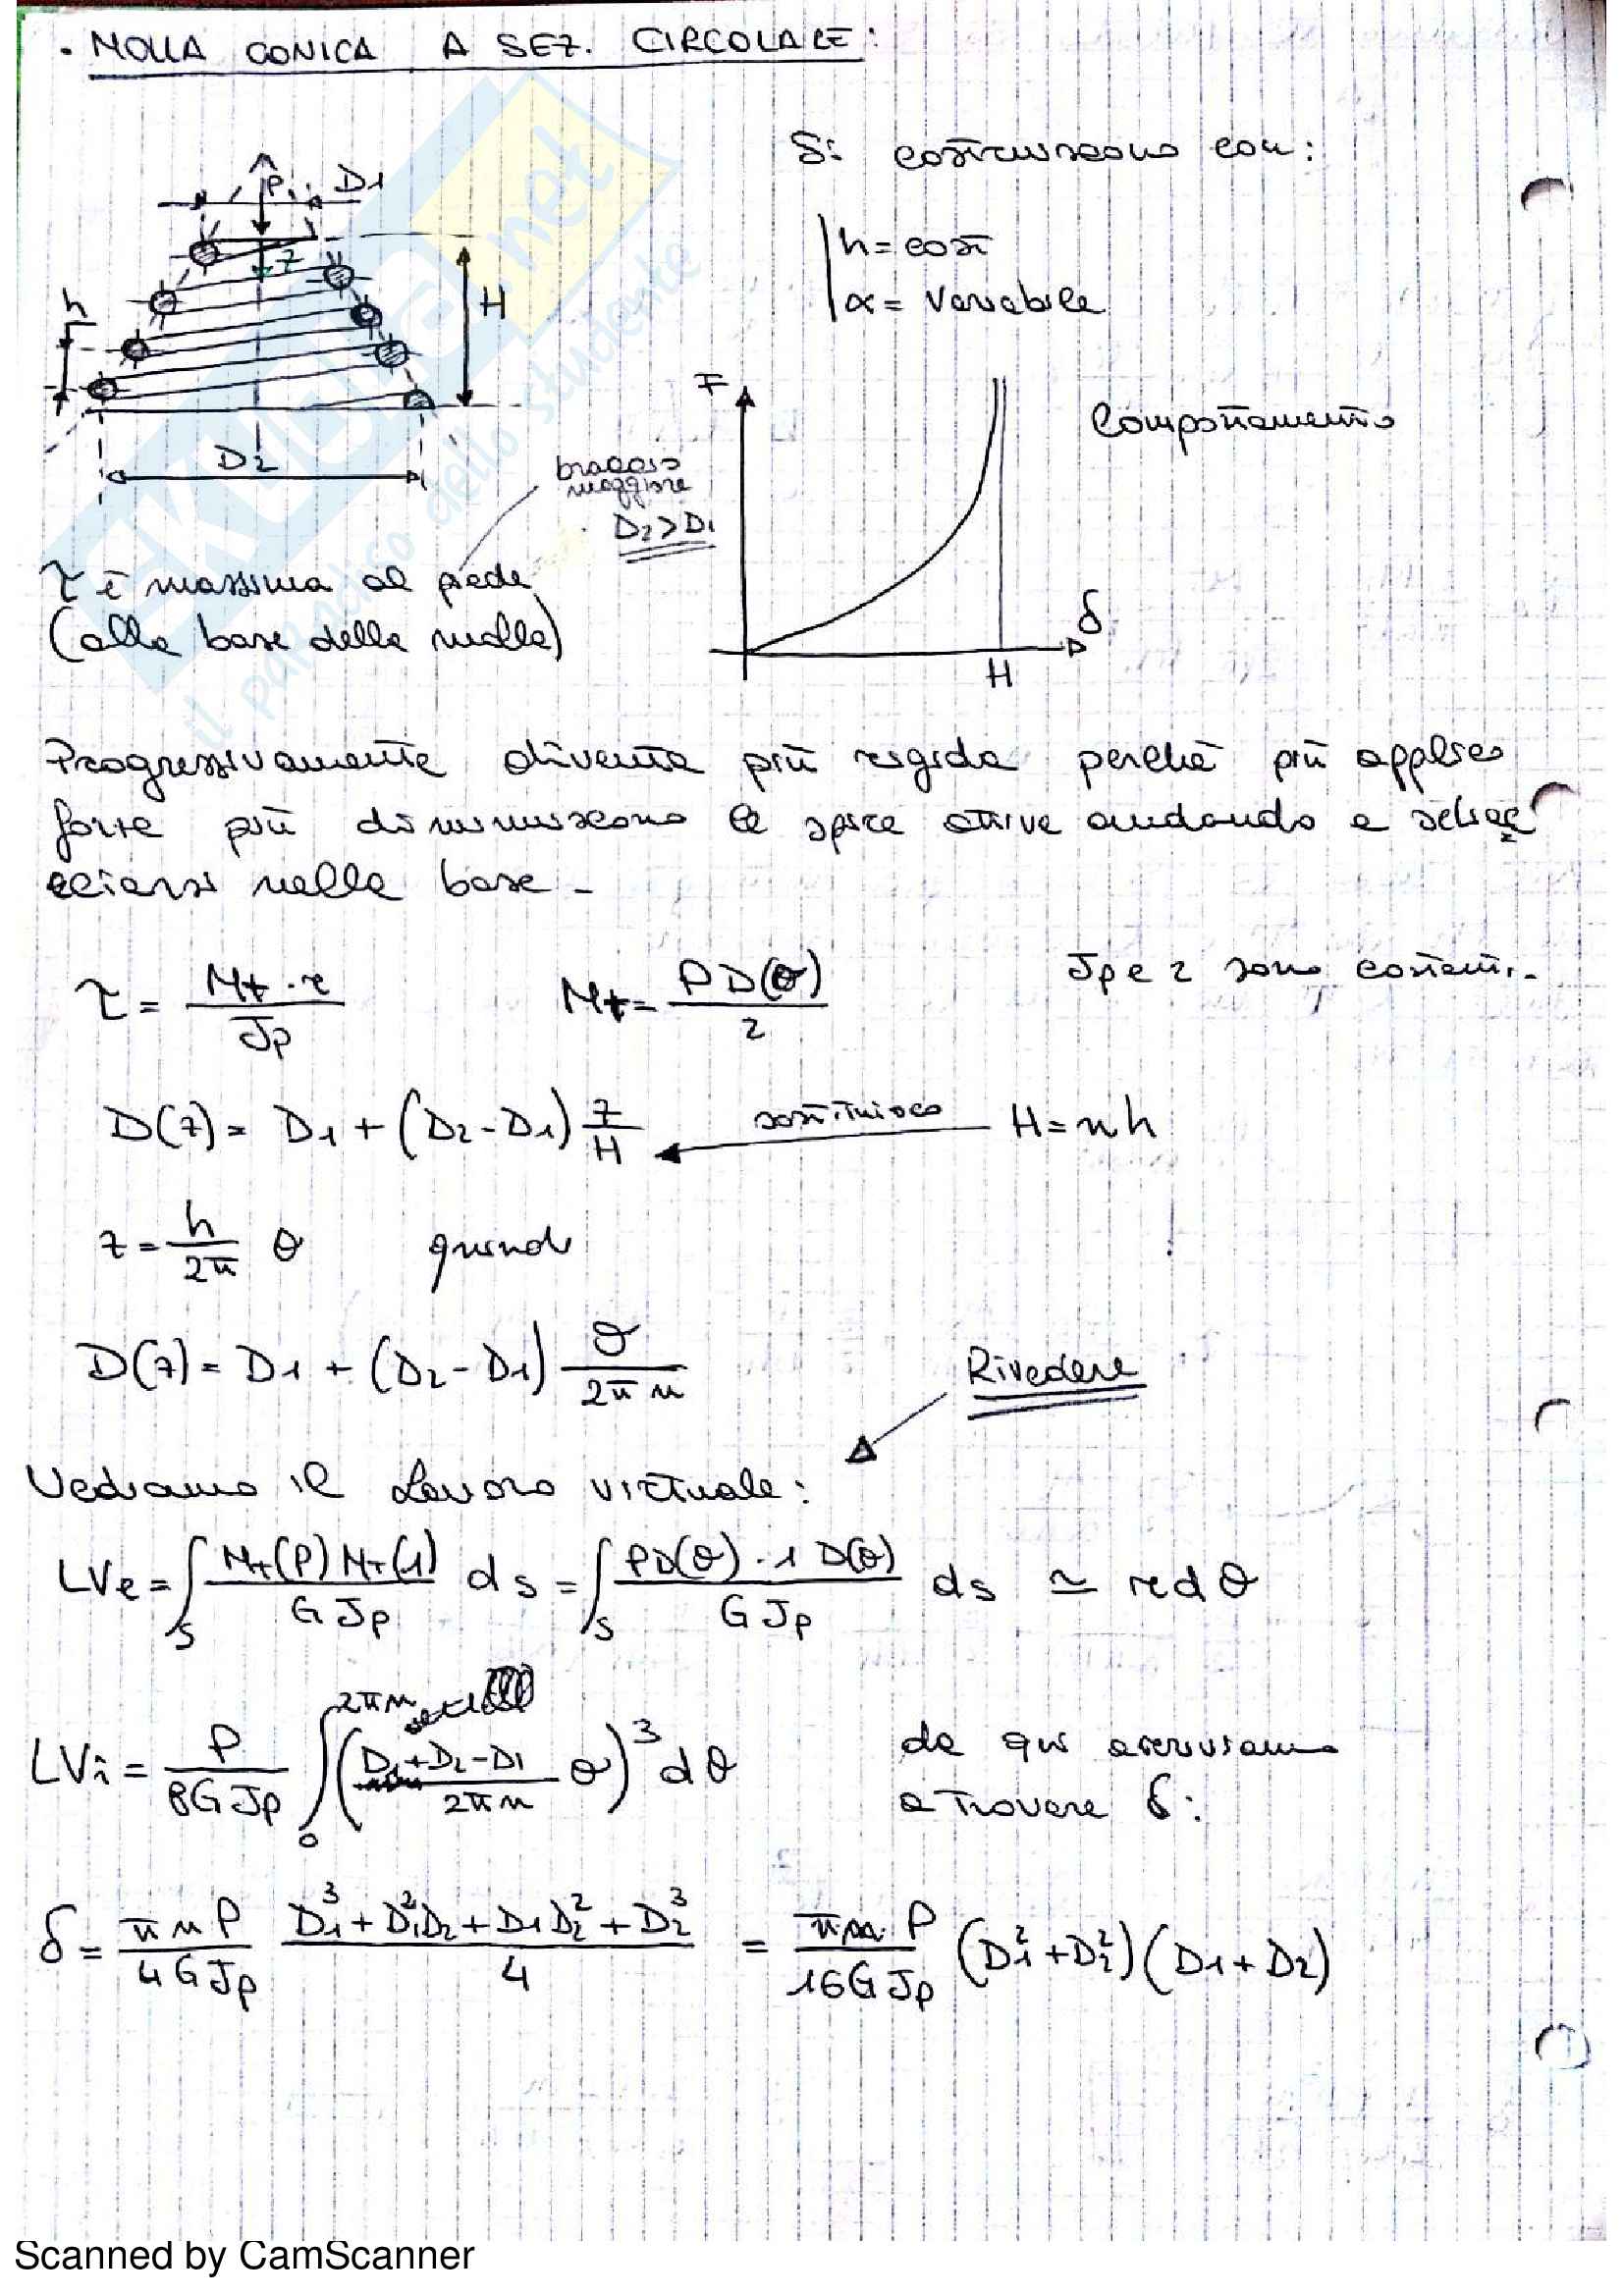 • MOLLA CONICA A SEZ. CIRCOLARE:
Si costruiscono con:
P D1
h = cost
α = variabile
z
h
H
F
Comportamento
D2
braccio
maggiore
D2 > D1
τ è massima al piede
(alla base della molla)
δ
H
Progressivamente diventa più rigida perché più applico
forze più diminuiscono le spire attive andando a schiac
ciarsi nella base -
τ = Mt · r / Jp Mt = P D(θ) / 2 Jp e r sono costanti.
D(z) = D1 + (D2 - D1) z/H sostituisco H = n h
z = h/2π θ quindi
D(z) = D1 + (D2 - D1) θ / 2π n
Rivedere
Vediamo il lavoro virtuale:
LVe = ∫S Mt(P) Mt(1) / G Jp ds = ∫S P D(θ) · 1 D(θ) / G Jp ds ≃ r d θ
LVi = P / 8 G Jp ∫0 2πn (D1 + D2 - D1 / 2πn θ)³ dθ da qui arriviamo
a trovare δ:
δ = π n P / 4 G Jp D1³ + D1² D2 + D1 D2² + D2³ / 4 = π n P / 16 G Jp (D1² + D2²) (D1 + D2)
Scanned by CamScanner
il paradiso dello studente